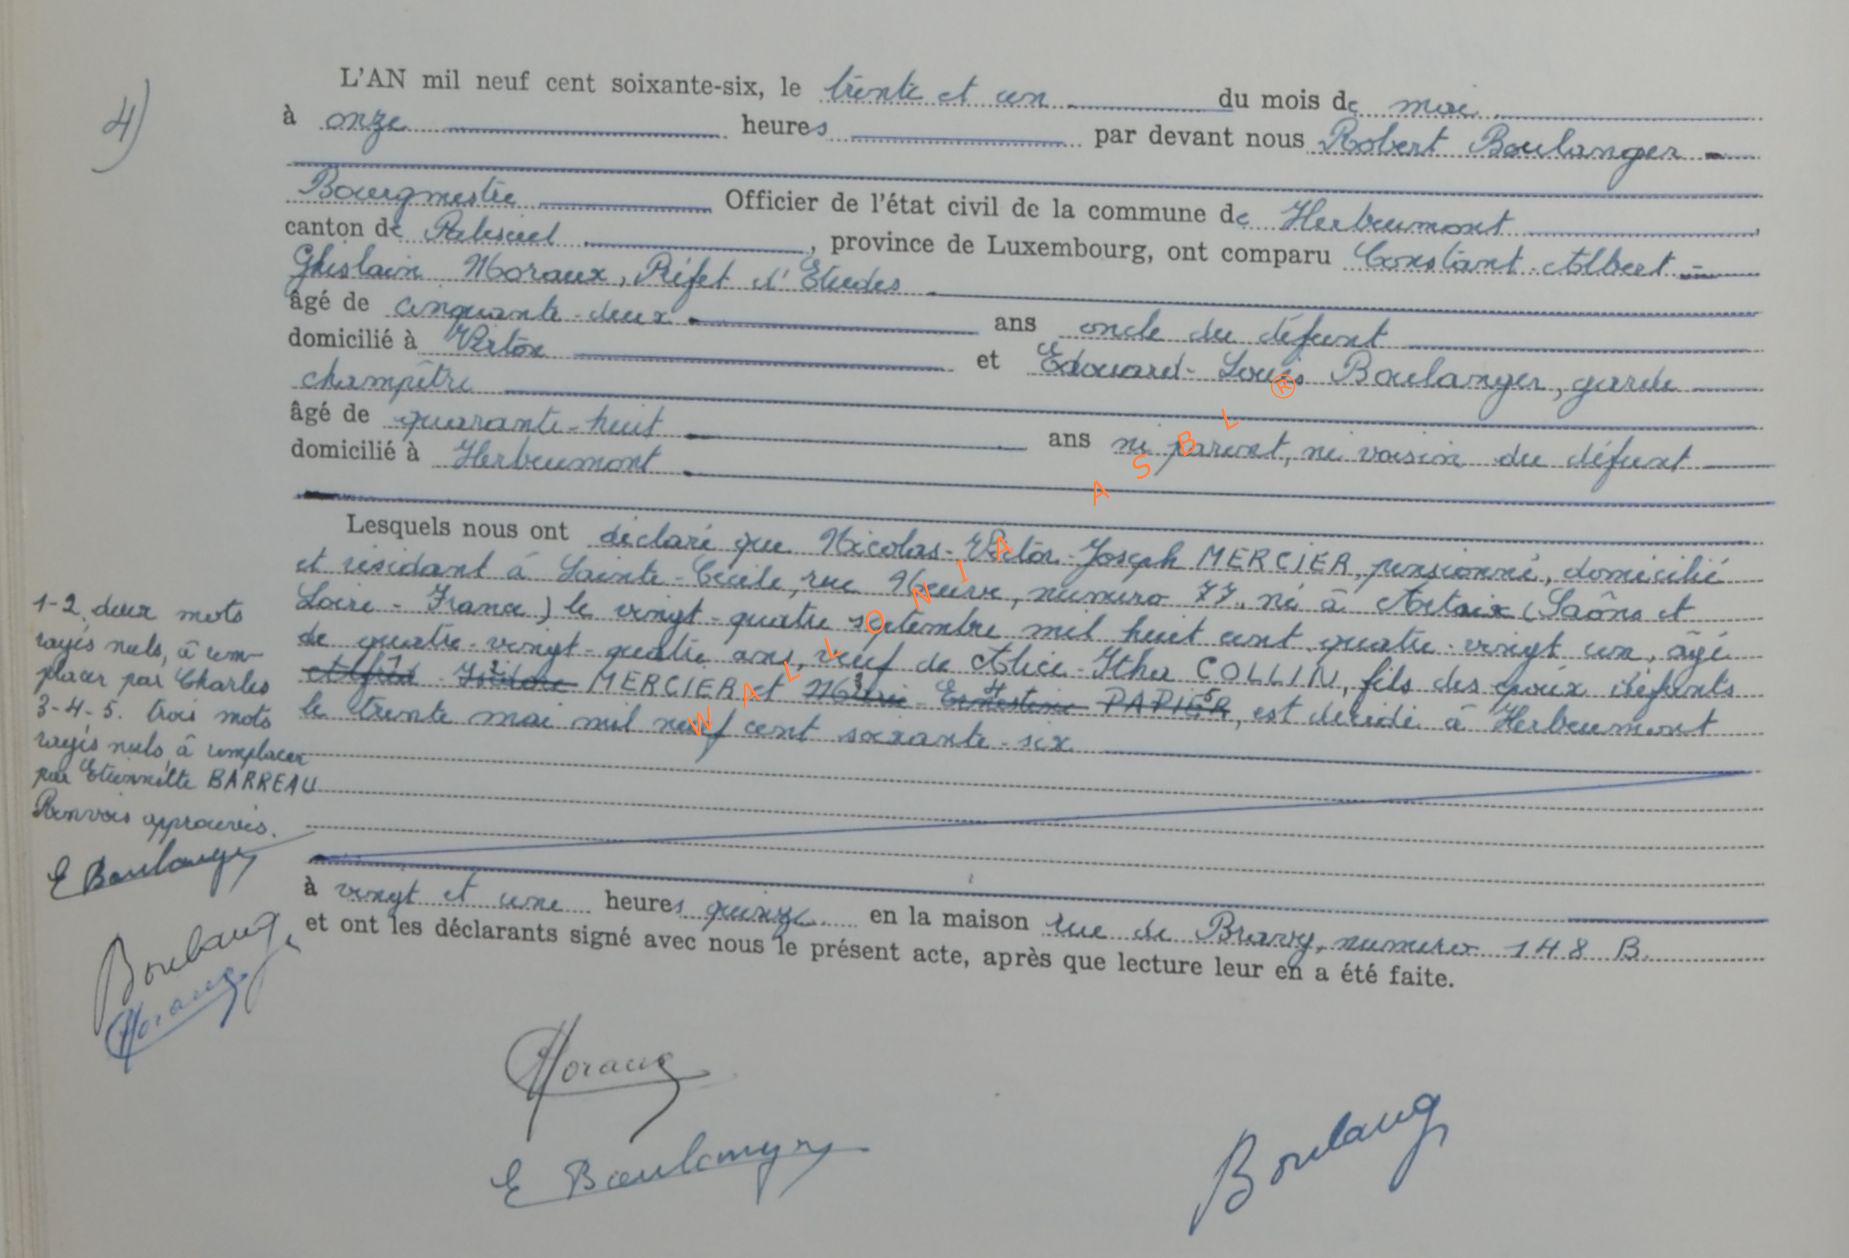 4)
L'AN mil neuf cent soixante-six, le trente et un du mois de mai
à onze heures par devant nous Robert Boulanger
Bourgmestre Officier de l'état civil de la commune de Herbeumont
canton de Paliseul, province de Luxembourg, ont comparu Constant-Albert-
Ghislain Moraux, Préfet d'Etudes
âgé de cinquante-deux ans oncle du défunt
domicilié à Virton et Edouard-Louis Boulanger, garde
champêtre
âgé de quarante-huit ans ni parent, ni voisin du défunt
domicilié à Herbeumont
Lesquels nous ont déclaré que Nicolas-Victor-Joseph MERCIER, pensionné, domicilié
et résidant à Sainte-Cécile, rue Neuve, numéro 77, né à Artaix (Saône et
Loire - France) le vingt-quatre septembre mil huit cent quatre-vingt un, âgé
de quatre-vingt-quatre ans, veuf de Alice-Itha COLLIN, fils des époux défunts
Alfred - Isidore MERCIER et Marie - Ernestine PAPIER, est décédé à Herbeumont
le trente mai mil neuf cent soixante-six
1-2. deux mots
rayés nuls, à rem-
placer par Charles
3-4-5. trois mots
rayés nuls, à remplacer
par Etiennette BARREAU
Renvois approuvés.
E Boulanger
Boulanger
Moraux
à vingt et une heures quinze en la maison rue de Bravy, numéro 148 B.
et ont les déclarants signé avec nous le présent acte, après que lecture leur en a été faite.
Moraux
E Boulanger
Boulanger
WALLONIA ASBL ®